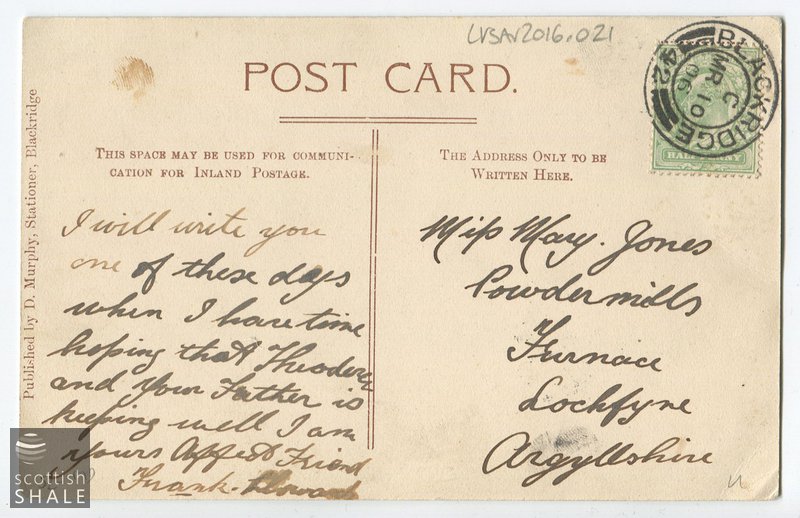 LVSAV2016.021
POST CARD.
BLACKRIDGE
C
MR 10
06
42
HALFPENNY
THIS SPACE MAY BE USED FOR COMMUNI-
CATION FOR INLAND POSTAGE.
THE ADDRESS ONLY TO BE
WRITTEN HERE.
Published by D. Murphy, Stationer, Blackridge
I will write you
one of these days
when I have time
hoping that
and your Father is
keeping well I am
yours Affect Friend
Frank
Miss Mary. Jones
Powdermills
Furnace
Lochfyne
Argyllshire
scottish
SHALE